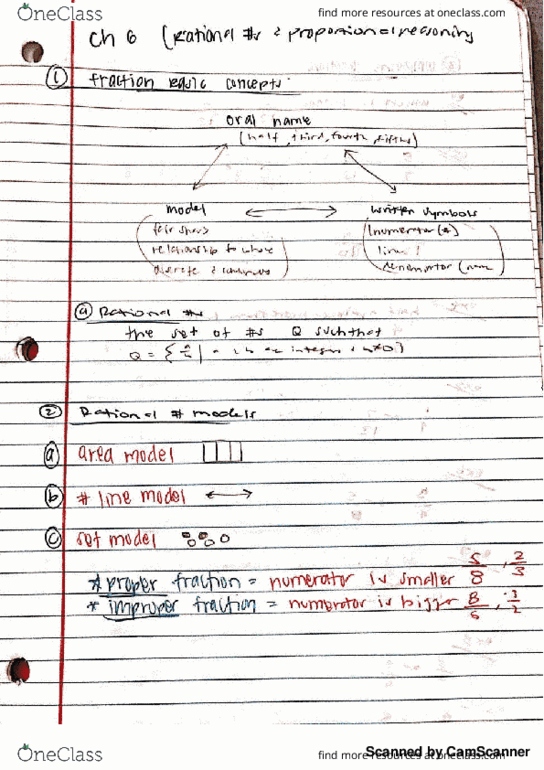 OneClass
find more resources at oneclass.com
Ch 6 (Rational #s & proportional reasoning
① fraction basic concepts:
oral name
(half, third, fourth, fifths)
model
written symbols
(fair shares
(numerator (#)
relationship to whole
line
discrete & continuous)
denominator (name
ⓐ Rational #s
the set of #s Q such that
Q = { | integers
② Rational # models
ⓐ area model
ⓑ # line model
ⓒ set model
* proper fraction = numerator is smaller 5/8, 2/3
* improper fraction = numerator is bigger 8/5, 3/2
OneClass
find more resources at oneclass.com
Scanned by CamScanner